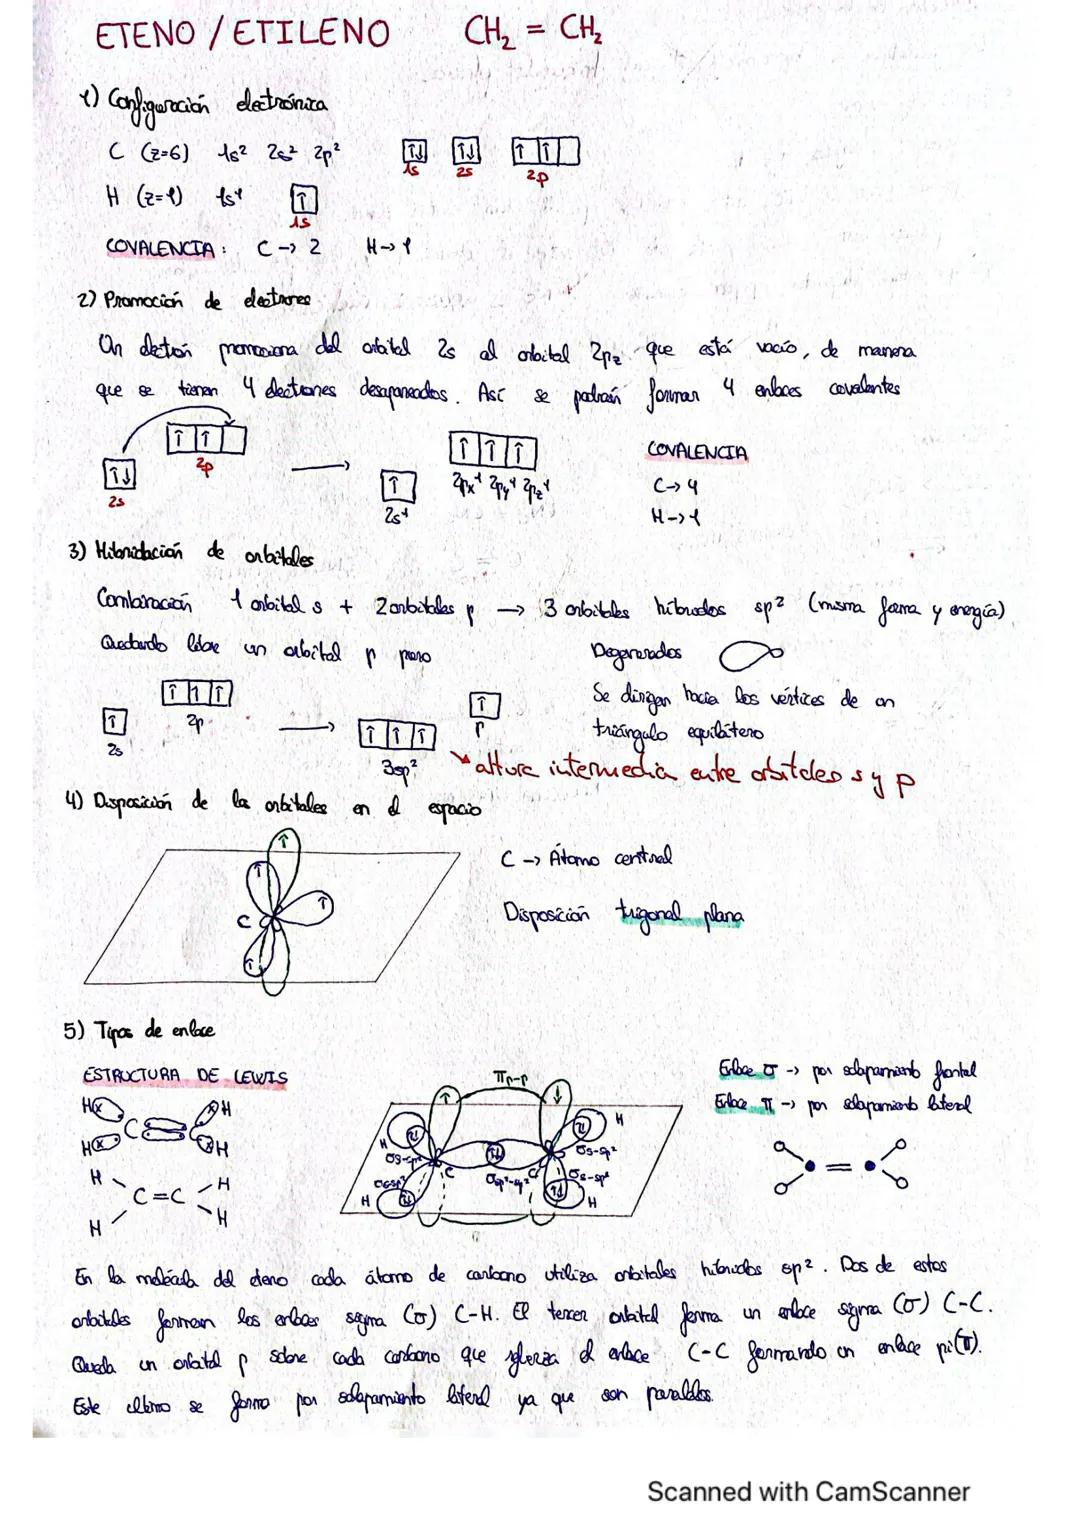 ETENO / ETILENO CH₂ = CH₂
1) Configuración electrónica
C (z=6) 1s² 2s² 2p² ↑↓ 1s ↑↓ 2s ↑ ↑ 2p
H (z=1) 1s¹ ↑ 1s
COVALENCIA: C → 2 H → 1
2) Promoción de electrones
Un electrón promociona del orbital 2s al orbital 2pz que está vacío, de manera
que se tienen 4 electrones desapareados. Así se podrán formar 4 enlaces covalentes
↑↓ 2s ↑ ↑ 2p → ↑ 2s¹ ↑ ↑ ↑ 2px¹ 2py¹ 2pz¹
COVALENCIA
C → 4
H → 1
3) Hibridación de orbitales
Combinación 1 orbital s + 2 orbitales p → 3 orbitales híbridos sp² (misma forma y energía)
Quedando libre un orbital p puro
Degenerados
Se dirigen hacia los vértices de un
triángulo equilátero
↑ 2s ↑ ↑ ↑ 2p → ↑ ↑ ↑ 3sp² ↑ p
altura intermedia entre orbitales s y p
4) Disposición de los orbitales en el espacio
C
C → Átomo central
Disposición trigonal plana
5) Tipos de enlace
ESTRUCTURA DE LEWIS
Hx C C xH
Hx xH
H H
C=C
H H
πp-p
H σs-sp² C σsp²-sp² C σs-sp² H
H σs-sp² σs-sp² H
Enlace σ → por solapamiento frontal
Enlace π → por solapamiento lateral
En la molécula del eteno cada átomo de carbono utiliza orbitales híbridos sp². Dos de estos
orbitales forman los enlaces sigma (σ) C-H. El tercer orbital forma un enlace sigma (σ) C-C.
Queda un orbital p sobre cada carbono que refuerza el enlace C-C formando un enlace pi (π).
Este último se forma por solapamiento lateral ya que son paralelos.
Scanned with CamScanner